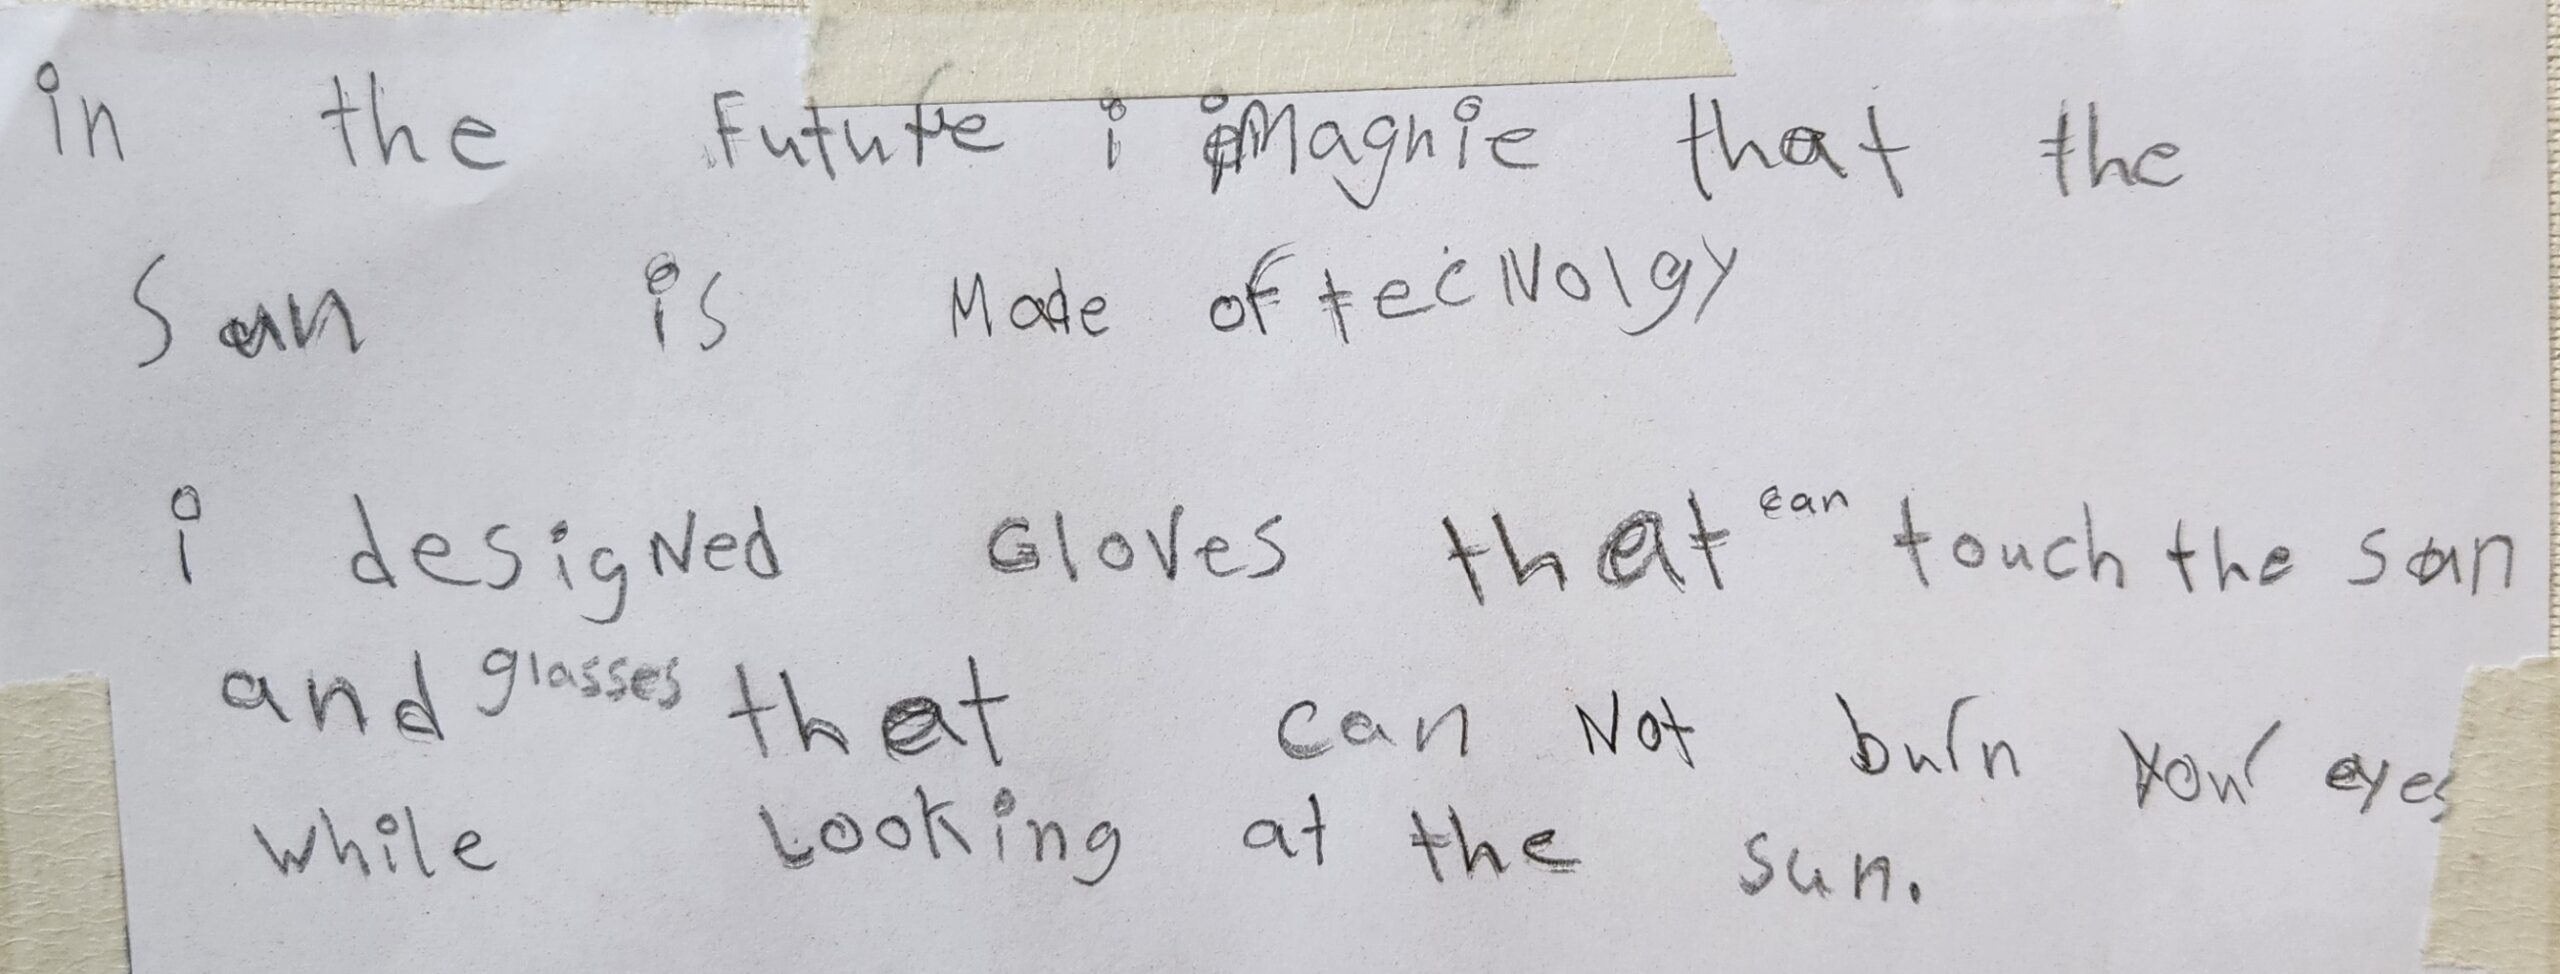 in the Future i iMagnie that the
Sun is Made of tecNolgy
i desigNed Gloves that can touch the sun
and glasses that can Not burn your eyes
while Looking at the sun.